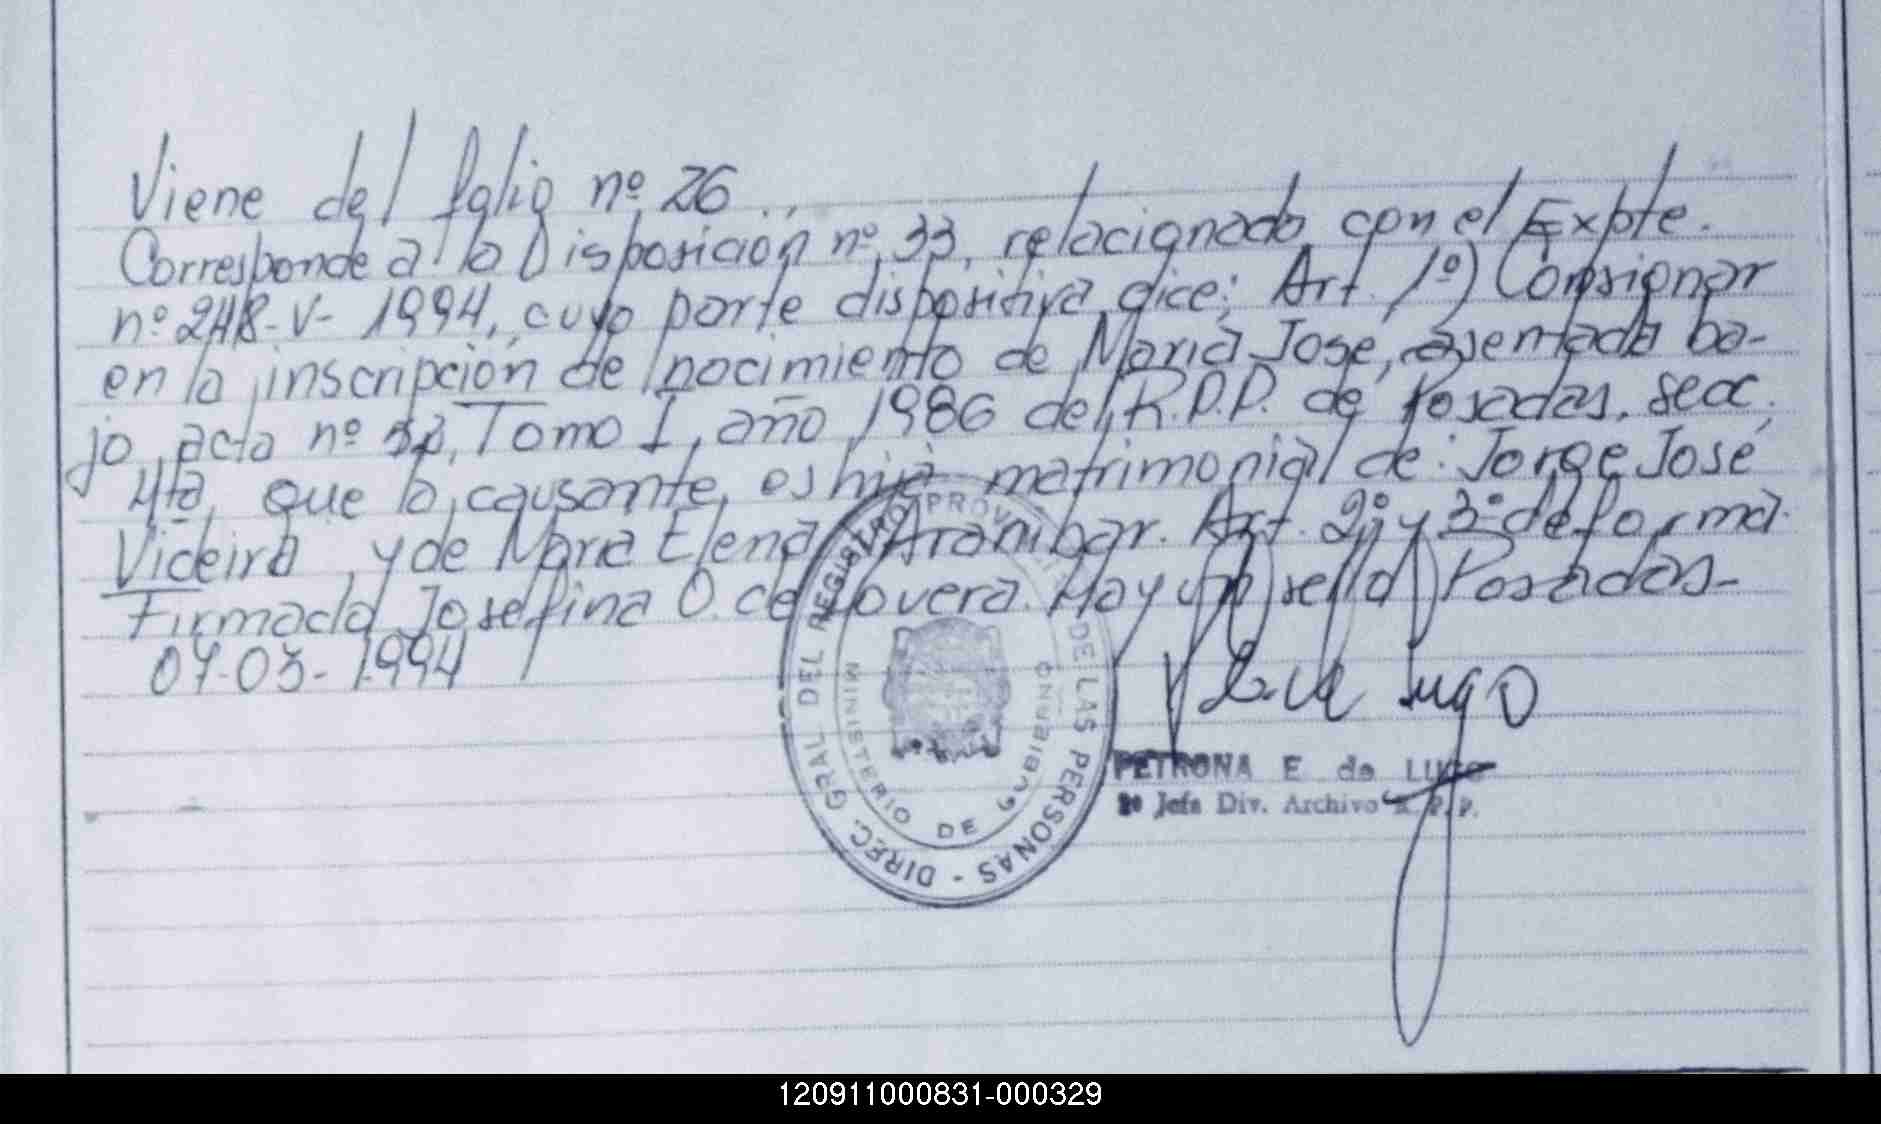 Viene del folio nº 26..
Corresponde a la Disposición nº 33, relacionado con el Expte.
nº 248-V- 1994, cuyo parte dispositiva dice: Art. 1º) Consignar
en la inscripción de nacimiento de María José, asentada ba-
jo acta nº 32, Tomo I, año 1986 del R.P.P. de Posadas, secc.
4ta, que la causante, es hija matrimonial de: Jorge José
Videira, y de María Elena Aranibar. Art. 2º y 3º de forma.
Firmado Josefina O. de Lovera. Hay un sello Posadas-
07-03-1994
DIREC. GRAL DEL REGISTRO PROVINCIAL DE LAS PERSONAS -
MINISTERIO DE GOBIERNO
P E de Lugo
PETRONA E de LUGO
2º Jefa Div. Archivo R. P. P.
120911000831-000329